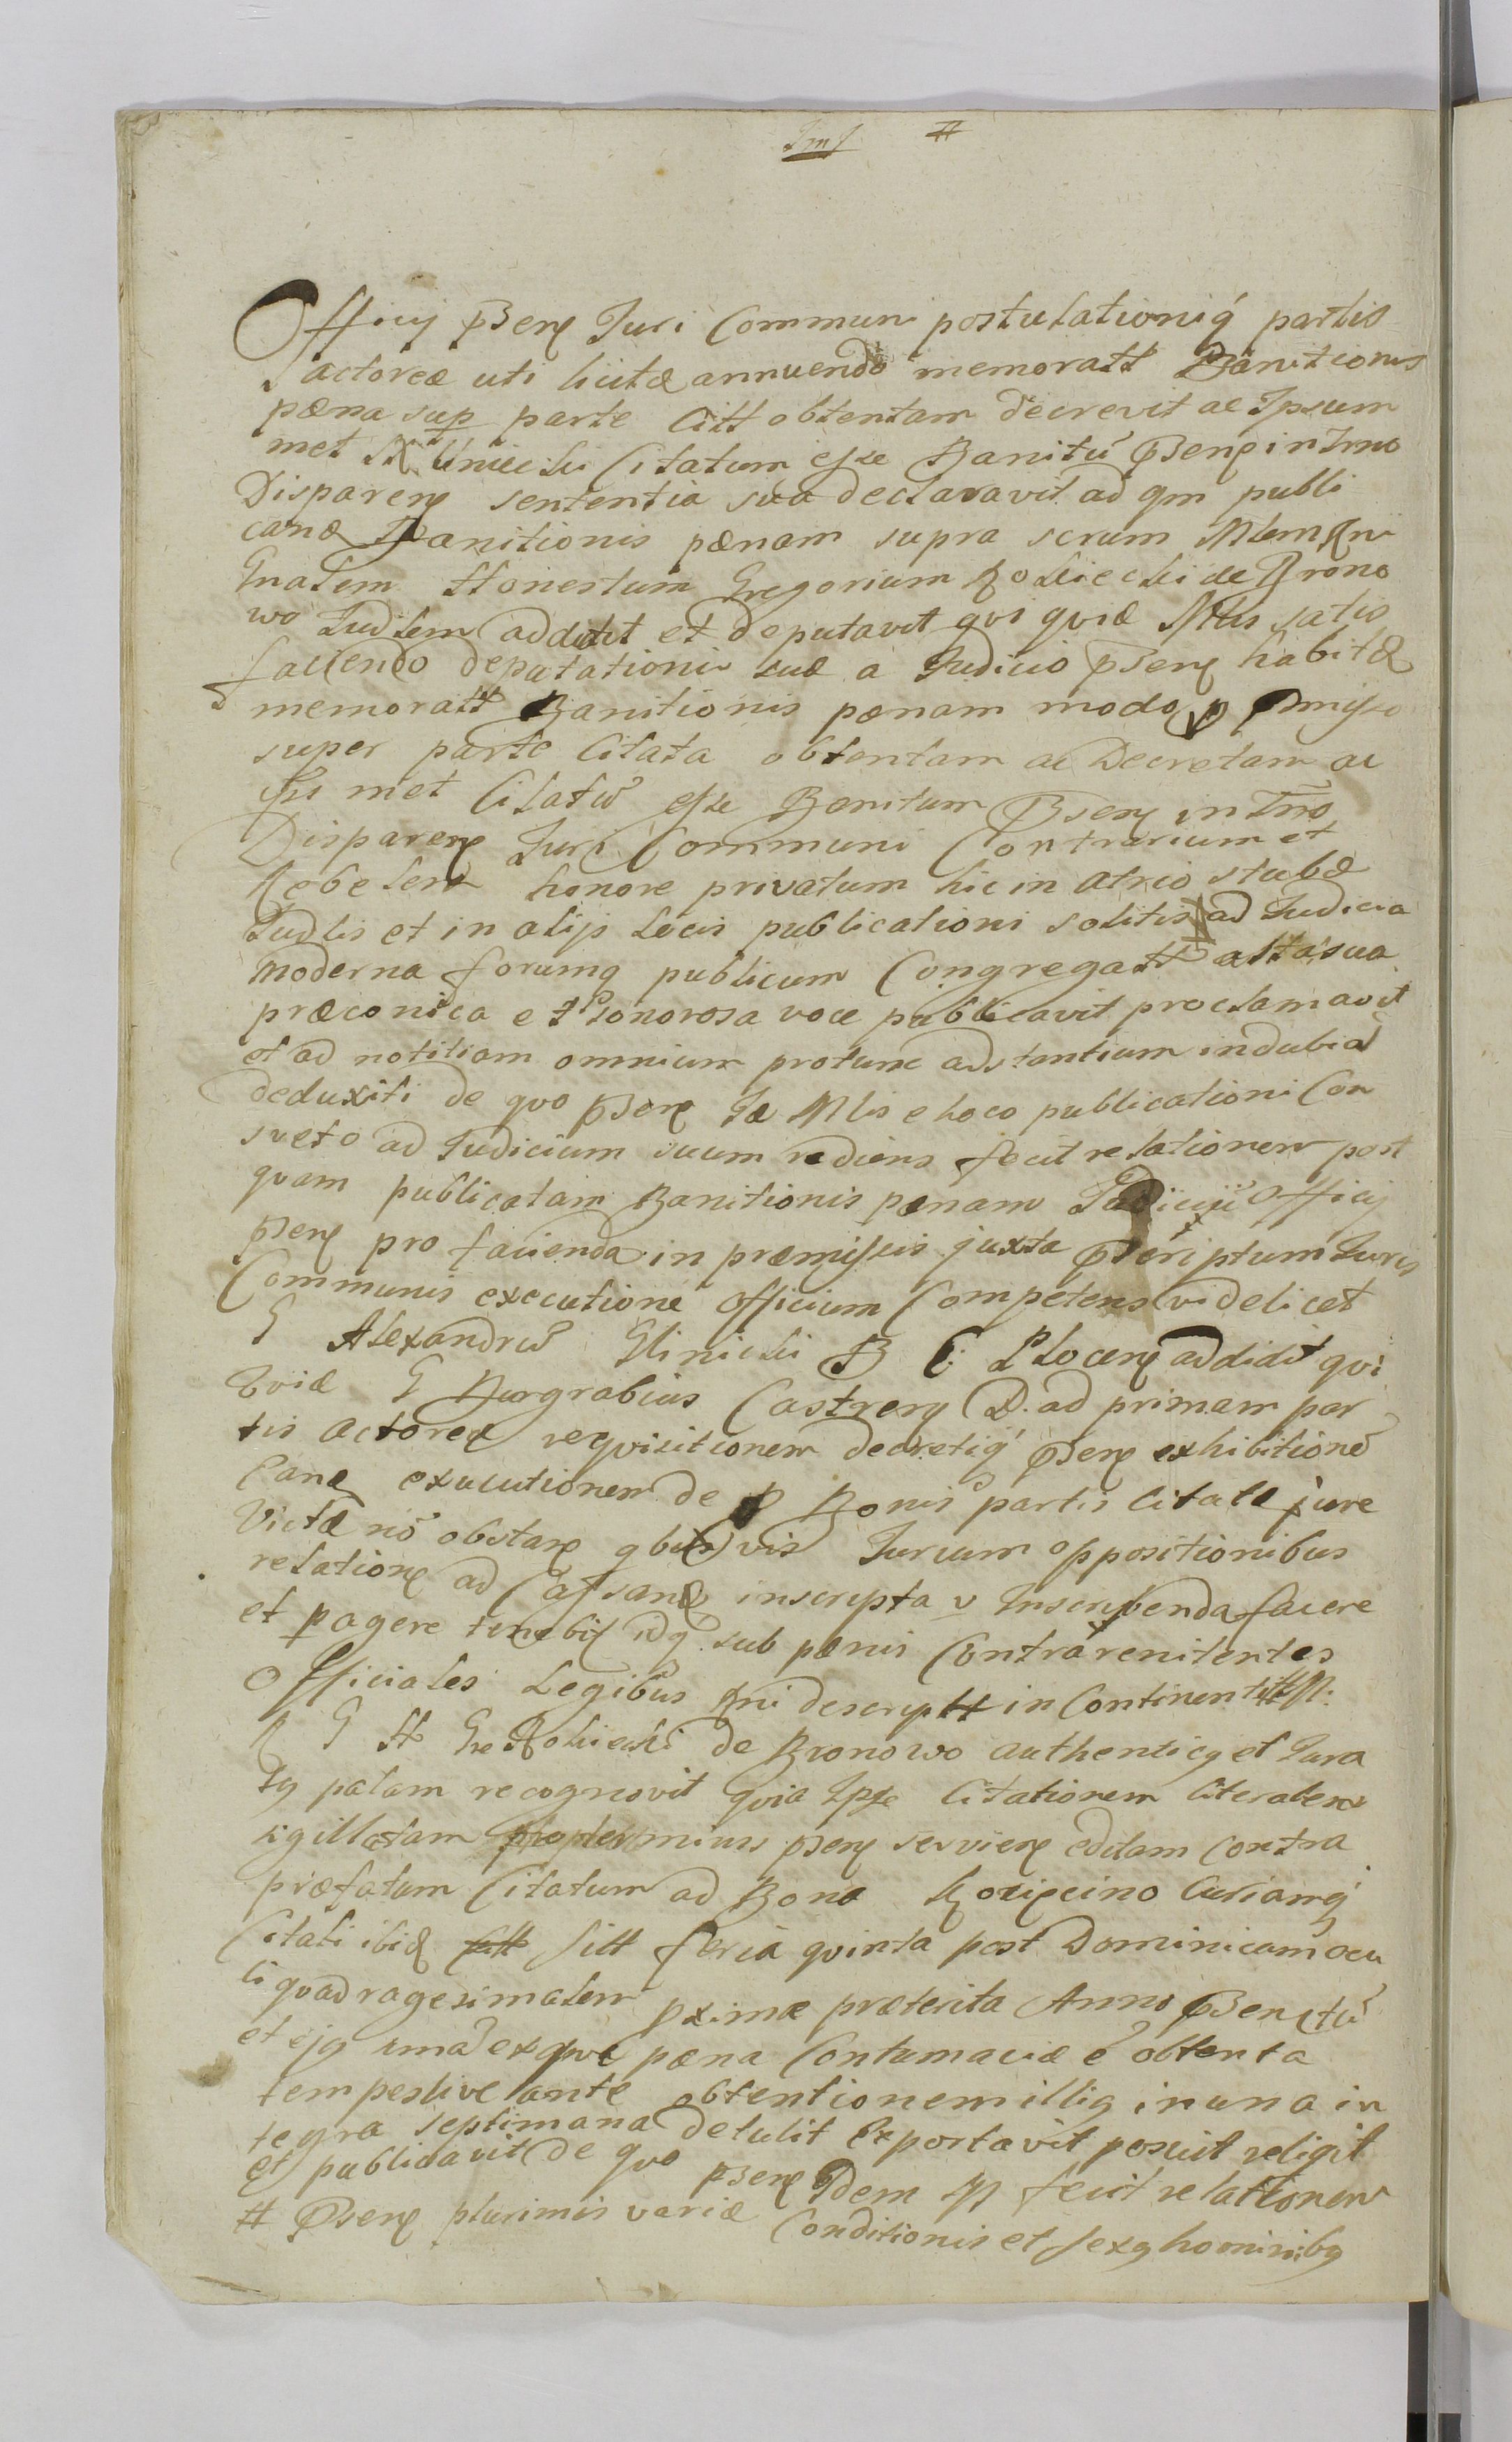 Officij pñseñ Juri Communi postulationiq́ partis
actoreæ uti licitæ annuendo memoratt Banitionis
pœna sup parte Citt obtentam decrevit ac Ipsum
met Citatum esse Banitũ pñseñ in Trno
Dispareñ sententia sua declaravit ad qm publi
canđ Banitionis pœnam supra scrum Mlem
Gnalem Honestum Gregorium Rokicki de Brono
wo Judlem addidit et deputavit qui quiđ Mlis satis
faciendo deputationi suæ a Judicio pñseñ habitæ
memoratt Banitionis pœnam modo p pmisso
super parte Citata obtentam ac Decretam ac
Ips met Citatũ esse Banitum pñseñ in Trno
Dispareñ Juri Communi Contrarium et
Rebelem honore privatum hic in atrio stubæ
Judlis et in alijs locis publicationi solitis ad Judicia
moderna forumq publicum Congregatt alta sua
præconica et sonorosa voce publicavit proclamavit
et ad notitiam omnium protunc adstantium indubiã
deduxit de quo pñseñ Mlis e loco publicationi Con
sveto ad Judicium suum rediens fecit relationem post
quam publicatam Banitionis pœnam Judicij Officij
pñseñ pro facienda in præmissis juxta præscriptum Juris
Communis executione Officium Competens videlicet
G Alexandrũ Glinicki B C Plocen addidit qui
quiđ G Burgrabius Castreñ D. ad primam par
tis actoreæ requisitionem decretiq́ pñseñ exhibitionẽ
Canđ executionem de Bonis partis Citatæ jure
Victæ nõ obstañ qbusvis Jurium oppositionibus
relatione ad Cassanđ inscripta v Inscribenda facere
et pagere tenebit idq́ sub pœnis Contra renitentes
Officiales Legibus Rni descriptt in Continenti M.
R G H Gre Rokicki de Bronowo authenticq et Jura
tq palam recognovit quia Ipse Citationem literalem
sigillatam pñseñ servieñ editam Contra
præfatum Citatum ad Bona Curiamq́
Citati ibiđ sitt feria quinta post Dominicam Ocu
li quadragesimalem pxime præterita Anno pñseñti
et ejq pœna Contumaciæ ẽ obtenta
tempestive ante obtentionem illiq in una in
tegra septimana detulit Exportavit posuit religit
et publicavit de quo pñseñ Idem M fecit relationem
# pñseñ plurimis variæ Conditionis et sexq hominibq